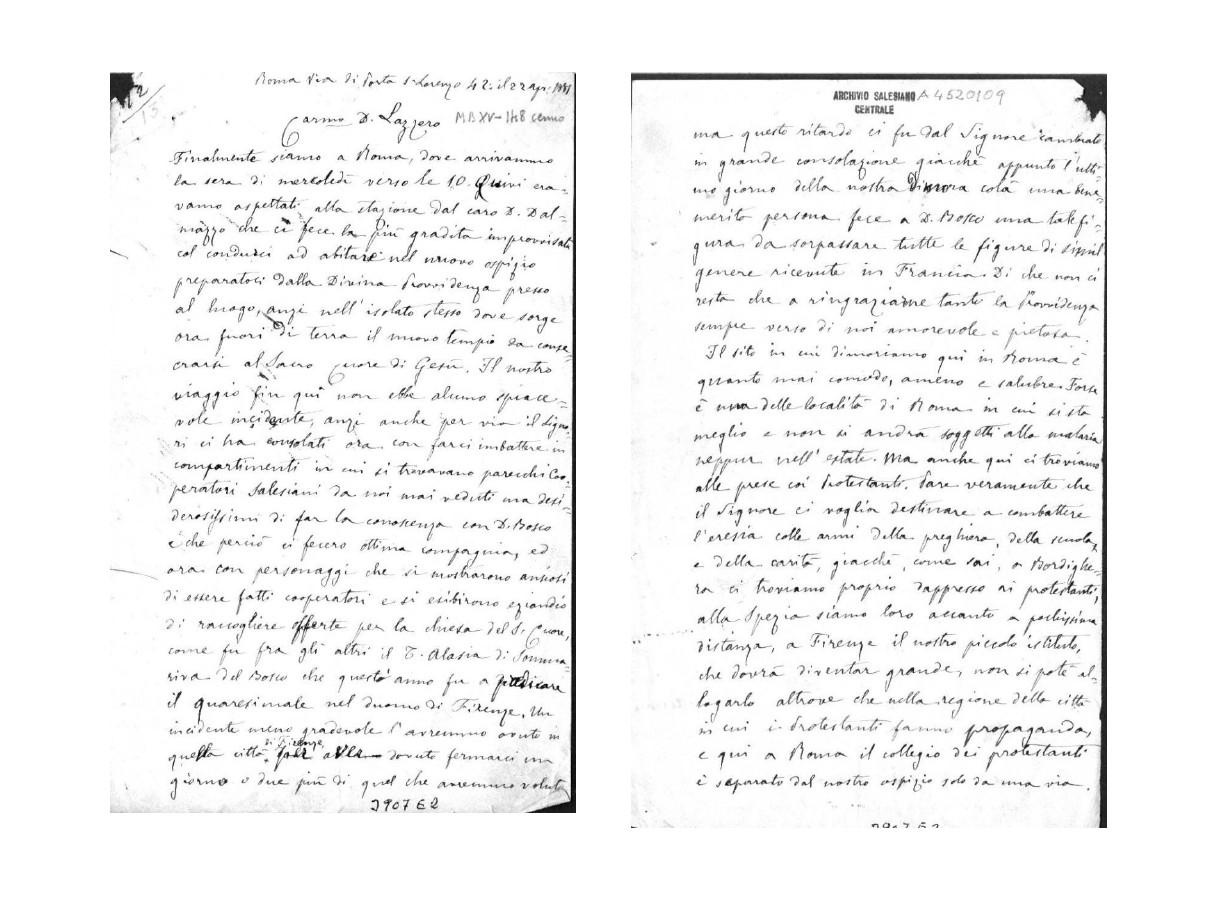 Roma Via di Porta S. Lorenzo 42: il 22 apr. 1881
Carmo D. Lazzero MBXV-148 cenno
Finalmente siamo a Roma, dove arrivammo
la sera di mercoledì verso le 10. Quivi era=
vamo aspettati alla stazione dal caro D. Dal=
mazzo che ci fece la più gradita improvvisata
col condurci ad abitare nel nuovo ospizio
preparatoci dalla Divina Provvidenza presso
al luogo, anzi nell' isolato stesso dove sorge
ora fuori di terra il nuovo tempio da conse=
crarsi al Sacro Cuore di Gesù. Il nostro
viaggio fin qui non ebbe alcuno spiace=
vole incidente, anzi anche per via il Signo=
re ci ha consolati ora con farci imbattere in
compartimenti in cui si trovavano parecchi Coo=
peratori Salesiani da noi mai veduti ma desi=
derosissimi di far la conoscenza con D. Bosco
e che perciò ci fecero ottima compagnia, ed
ora con personaggi che si mostrarono ansiosi
di essere fatti cooperatori e si esibirono eziandio
di raccogliere offerte per la chiesa del S. Cuore,
come fu fra gli altri il T. Alasia di Somma=
riva del Bosco che quest' anno fu a predicare
il quaresimale nel duomo di Firenze. Un
incidente meno gradevole l' avremmo avuto in
quella città di Firenze, dovuto fermarci un
giorno o due più di quel che avremmo voluto
3907 E2
ARCHIVIO SALESIANO A 4520109
CENTRALE
ma questo ritardo ci fu dal Signore cambiato
in grande consolazione giacchè appunto l' ulti=
mo giorno della nostra dimora colà una bene=
merita persona fece a D. Bosco una tale fi=
gura da sorpassare tutte le figure di simil
genere ricevute in Francia. Di che non ci
resta che a ringraziare tanto la Provvidenza
sempre verso di noi amorevole e pietosa.
Il sito in cui dimoriamo qui in Roma è
quanto mai comodo, ameno e salubre. Forse
è una delle località di Roma in cui si sta
meglio e non si andrà soggetti alla malaria
neppur nell' estate. Ma anche qui ci troviamo
alle prese coi Protestanti. Pare veramente che
il Signore ci voglia destinare a combattere
l' eresia colle armi della preghiera, della scuola,
e della carità, giacchè, come sai, a Bordighe=
ra ci troviamo proprio dappresso ai protestanti,
alla Spezia siamo loro accanto a pochissima
distanza, a Firenze il nostro piccolo istituto,
che dovrà diventar grande, non si potè al=
logarlo altrove che nella regione della città
in cui i Protestanti fanno propaganda,
e qui a Roma il collegio dei protestanti
è separato dal nostro ospizio solo da una via.
3907 E3